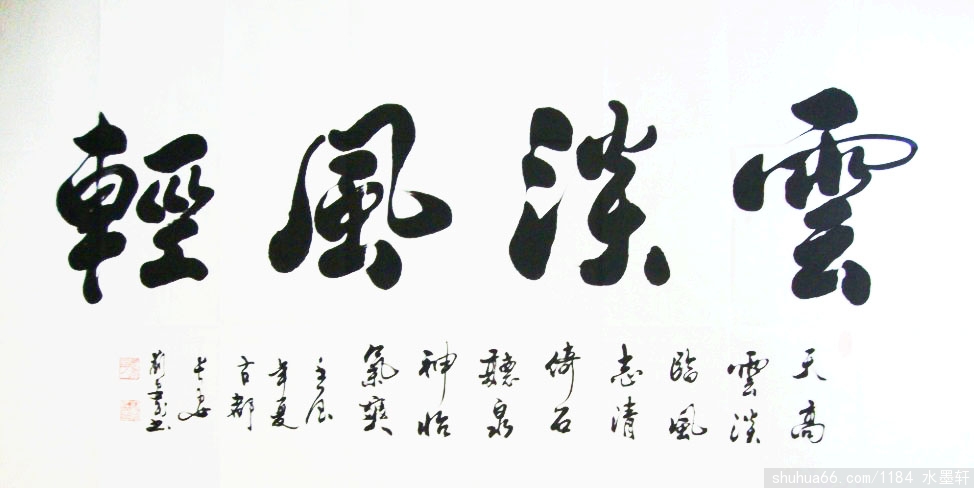 雲淡風輕
天高
雲淡
臨風
志清
倚石
聽泉
神怡
氣爽
壬辰
年夏
古都
長安
shuhua66.com/1184 水墨轩